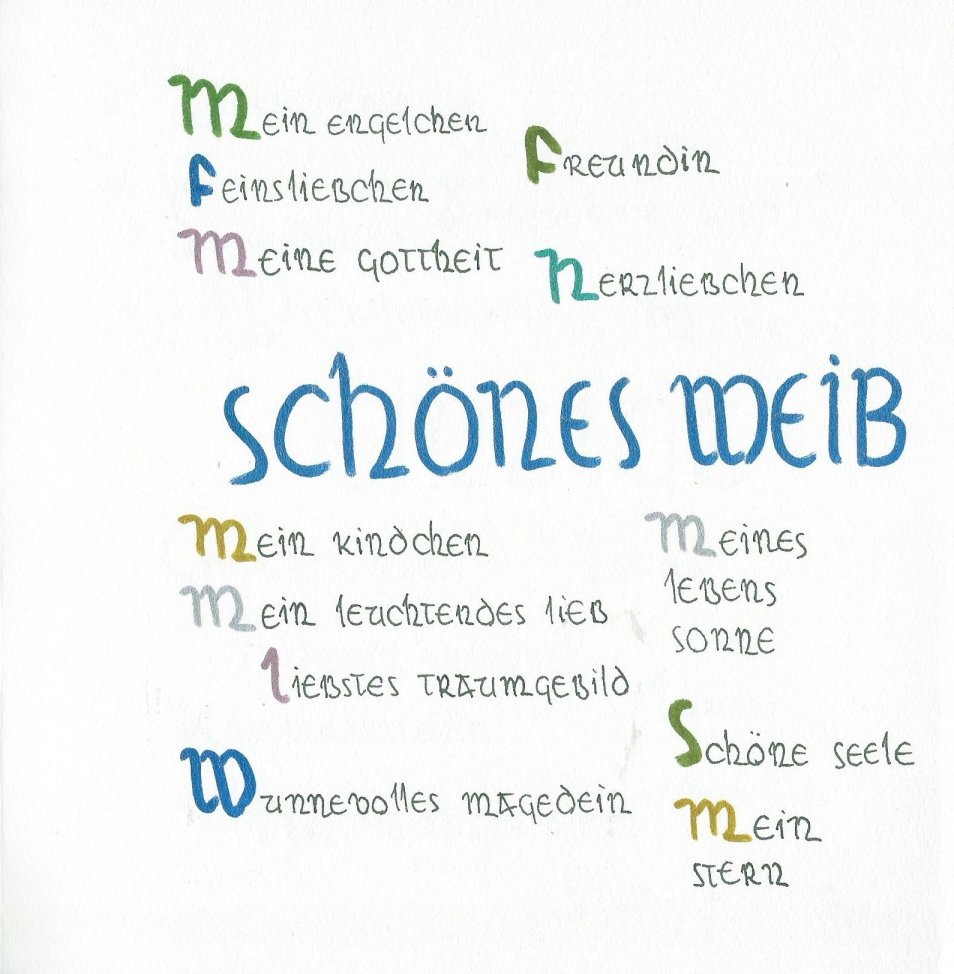 Mein Engelchen
Freundin
Feinsliebchen
Meine Gottheit
Herzliebchen
SCHÖNES WEIB
Mein Kindchen
Meines
Lebens
Sonne
Mein leuchtendes Lieb
Liebstes Traumgebild
Schöne Seele
Wunnevolles Magedein
Mein
Stern